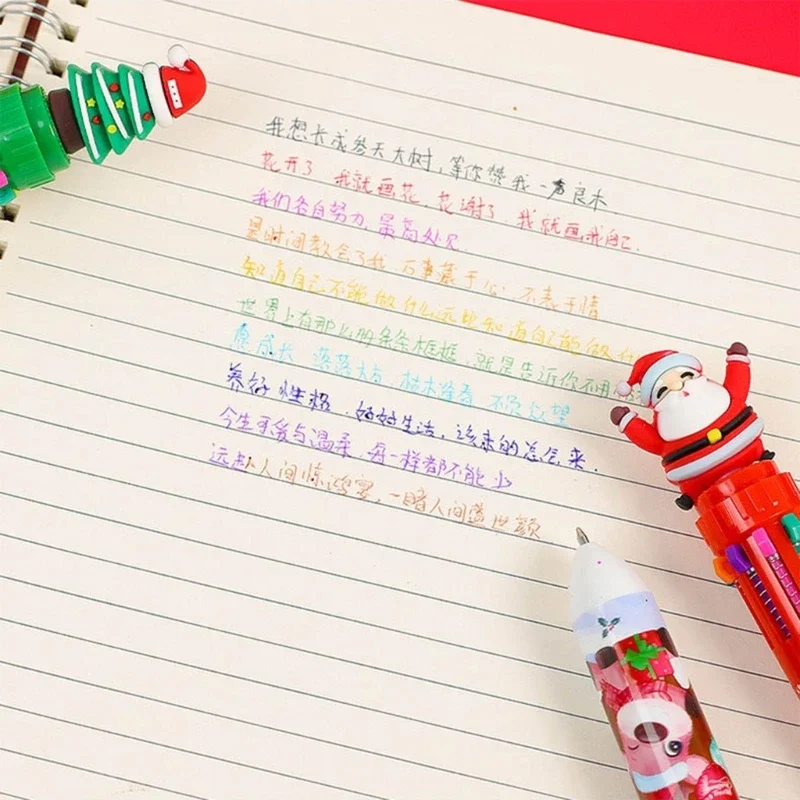 我想长成参天大树，等你懋我一声良木.
花开了 我就画花，花谢了 我就画我自己.
我们各自努力，最高处见
是时间教会了我 万事藏于心，不表于情
知道自己不能做什么远比知道自己能做什
世界上有那么多的条条框框，就是告诉你不用
愿成长 落落大方，枯木逢春 不负众望
养好性格，好好生活，该来的总会来.
今生可爱与温柔，每一样都不能少
远赴人间惊鸿宴，一睹人间盛世颜